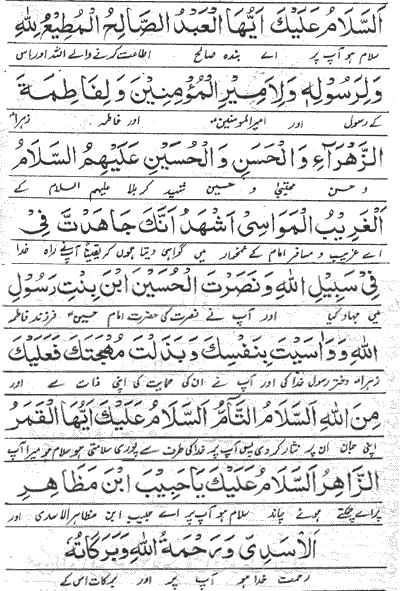 اَلسَّلَامُ عَلَيْكَ اَيُّهَا الْعَبْدُ الصَّالِحُ الْمُطِيْعُ لِلّٰهِ
سلام ہو آپ پر اے بندہ صالح اطاعت کرنے والے اللہ اور اس
وَلِرَسُوْلِهٖ وَلِاَمِيْرِ الْمُؤْمِنِيْنَ وَلِفَاطِمَةَ
کے رسول اور امیرالمومنین اور فاطمہ زہرا
الزَّهْرَآءِ وَالْحَسَنِ وَالْحُسَيْنِ عَلَيْهِمُ السَّلَامُ
و حسن مجتبیٰ و حسین شہید کربلا علیہم السلام کے
اَلْغَرِيْبُ الْمَوَاسِىْ اَشْهَدُ اَنَّكَ جَاهَدْتَّ فِىْ
اے غریب و مسافر امام کے غمخوار میں گواہی دیتا ہوں کہ یقیناً آپ نے راہ خدا
فِىْ سَبِيْلِ اللّٰهِ وَنَصَرْتَ الْحُسَيْنَ ابْنَ بِنْتِ رَسُوْلِ
میں جہاد کیا اور آپ نے نصرت کی حضرت امام حسین فرزند فاطمہ
اللّٰهِ وَوَاسَيْتَ بِنَفْسِكَ وَبَذَلْتَ مُهْجَتَكَ فَعَلَيْكَ
زہرا دختر رسول خدا کی اور آپ نے ان کی حمایت کی اپنی ذات سے اور
مِنَ اللّٰهِ السَّلَامُ التَّآمُّ اَلسَّلَامُ عَلَيْكَ اَيُّهَا الْقَمَرُ
اپنی جان ان پر نثار کر دی پس آپ پر خدا کی طرف سے پوری سلامتی ہو سلام ہو میرا آپ
الزَّاهِرُ اَلسَّلَامُ عَلَيْكَ يَاحَبِيْبَ ابْنَ مَظَاهِرِ
پر اے چمکتے ہوئے چاند سلام ہو آپ پر اے حبیب ابن مظاہر الاسدی اور
الْاَسَدِىِّ وَرَحْمَةُ اللّٰهِ وَبَرَكَاتُهٗ
رحمت خدا ہو آپ پر اور برکات اس کے